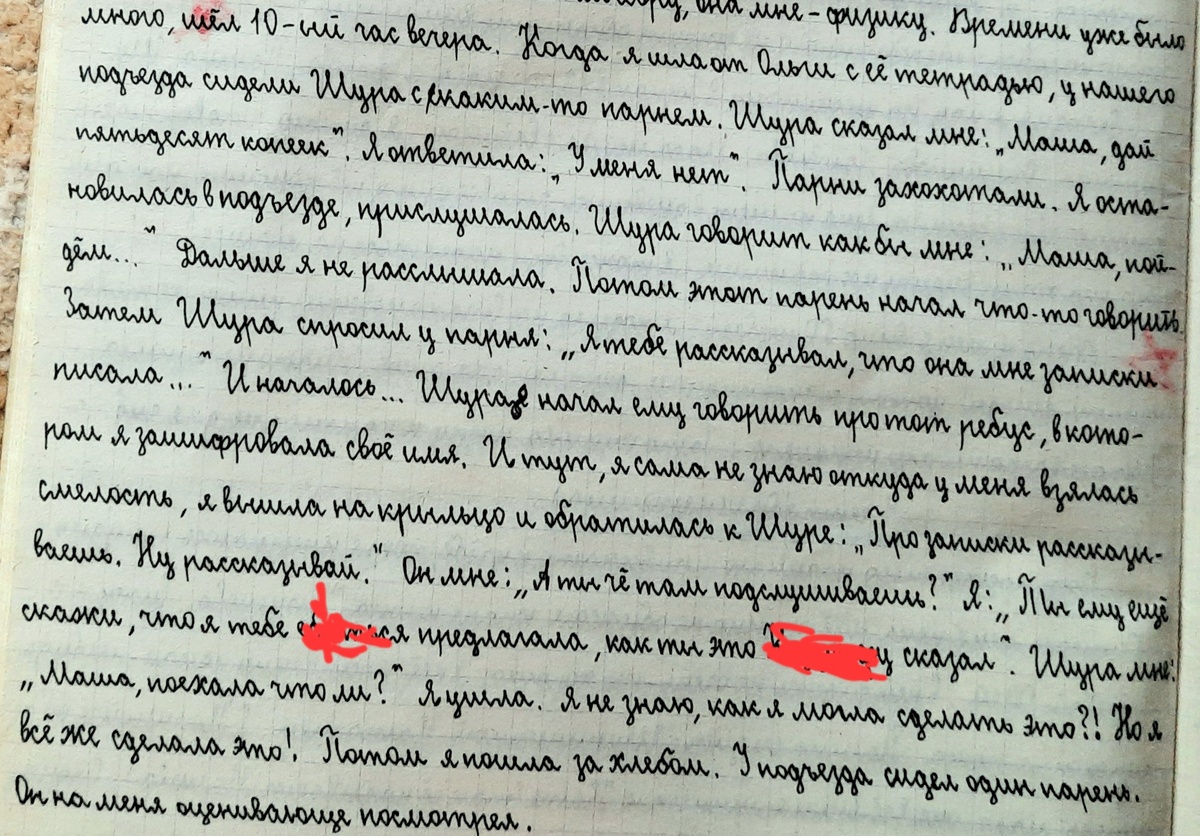 она мне - физику. Времени уже было
много, шёл 10-ый час вечера. Когда я шла от Ольги с её тетрадью, у нашего
подъезда сидели Шура с каким-то парнем. Шура сказал мне: „Маша, дай
пятьдесят копеек". Я ответила: „У меня нет". Парни захохотали. Я оста-
новилась в подъезде, прислушалась. Шура говорит как бы мне: „Маша, пой-
дём..." Дальше я не расслышала. Потом этот парень начал что-то говорить.
Затем Шура спросил у парня: „Я тебе рассказывал, что она мне записки
писала..." И началось... Шура начал ему говорить про тот ребус, в кото-
ром я зашифровала своё имя. И тут, я сама не знаю откуда у меня взялась
смелость, я вышла на крыльцо и обратилась к Шуре: „Про записки рассказы-
ваешь. Ну рассказывай." Он мне: „А ты чё там подслушиваешь?" Я: „Ты ему ещё
скажи, что я тебе предлагала, как ты это сказал". Шура мне:
„Маша, поехала что ли?" Я ушла. Я не знаю, как я могла сделать это?! Но я
всё же сделала это! Потом я пошла за хлебом. У подъезда сидел один парень.
Он на меня оценивающе посмотрел.